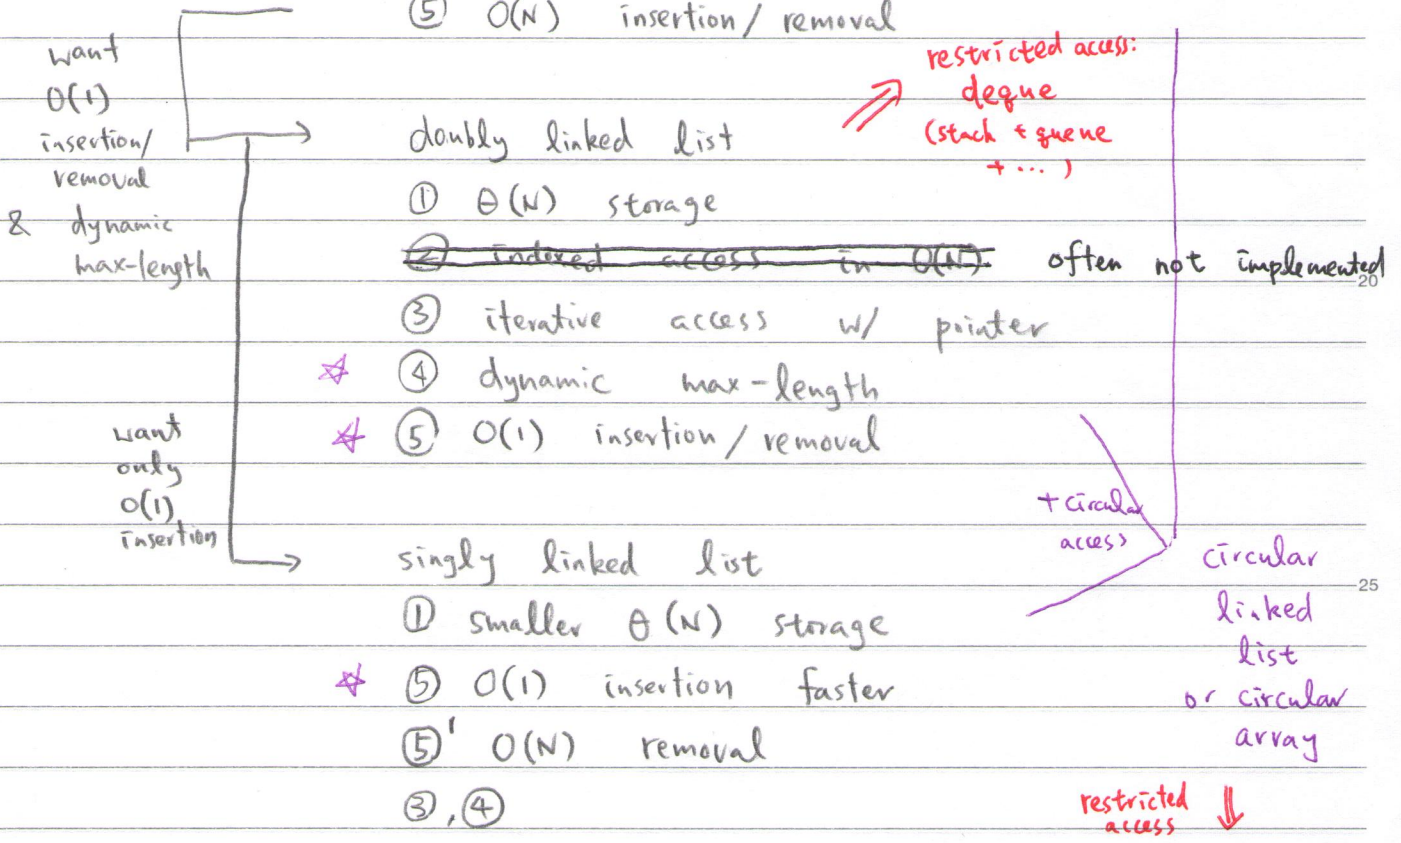 ⑤ O(N) insertion / removal
want
O(1)
insertion/
removal
& dynamic
max-length
restricted access:
deque
(stack + queue
+ ... )
doubly linked list
① θ(N) storage
② indexed access in O(N) often not implemented
20
③ iterative access w/ pointer
☆ ④ dynamic max-length
☆ ⑤ O(1) insertion / removal
want
only
O(1)
insertion
+ circular
access
circular
linked
list
or circular
array
singly linked list
25
① smaller θ(N) storage
☆ ⑤ O(1) insertion faster
⑤' O(N) removal
③, ④
restricted
access ⇓